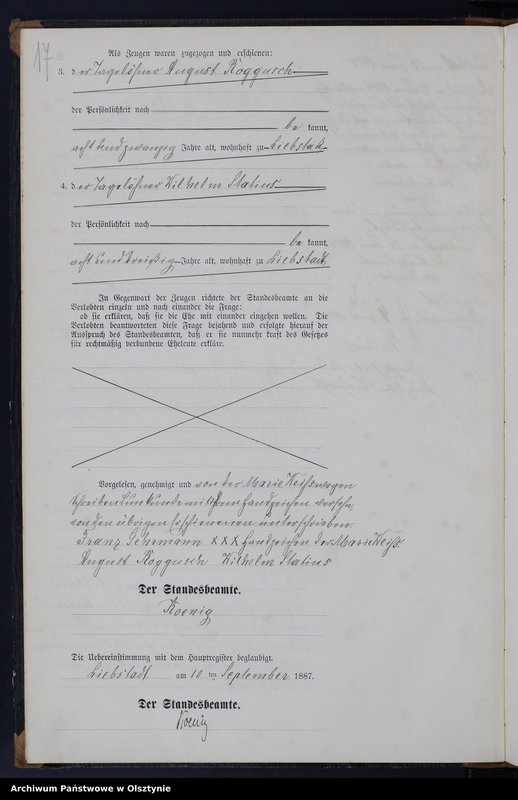 17
Als Zeugen waren zugezogen und erschienen:
3. der Tagelöhner August Roggusch
der Persönlichkeit nach
be kannt,
acht und zwanzig Jahre alt, wohnhaft zu Liebstadt
4. der Tagelöhner Wilhelm Statius
der Persönlichkeit nach
be kannt,
acht und dreißig Jahre alt, wohnhaft zu Liebstadt
In Gegenwart der Zeugen richtete der Standesbeamte an die
Verlobten einzeln und nach einander die Frage:
ob sie erklären, daß sie die Ehe mit einander eingehen wollen. Die
Verlobten beantworteten diese Frage bejahend und erfolgte hierauf der
Ausspruch des Standesbeamten, daß er sie nunmehr kraft des Gesetzes
für rechtmäßig verbundene Eheleute erkläre.
Vorgelesen, genehmigt und von der Marie Weiß wegen
Schreibensunkunde mit ihrem Handzeichen versehn,
von den übrigen Erschienenen unterschrieben.
Franz Gehrmann XXX Handzeichen der Marie Weiß.
August Roggusch Wilhelm Statius
Der Standesbeamte.
Koenig
Die Uebereinstimmung mit dem Hauptregister beglaubigt.
Liebstadt am 10 ten September 1887.
Der Standesbeamte.
Koenig
Archiwum Państwowe w Olsztynie